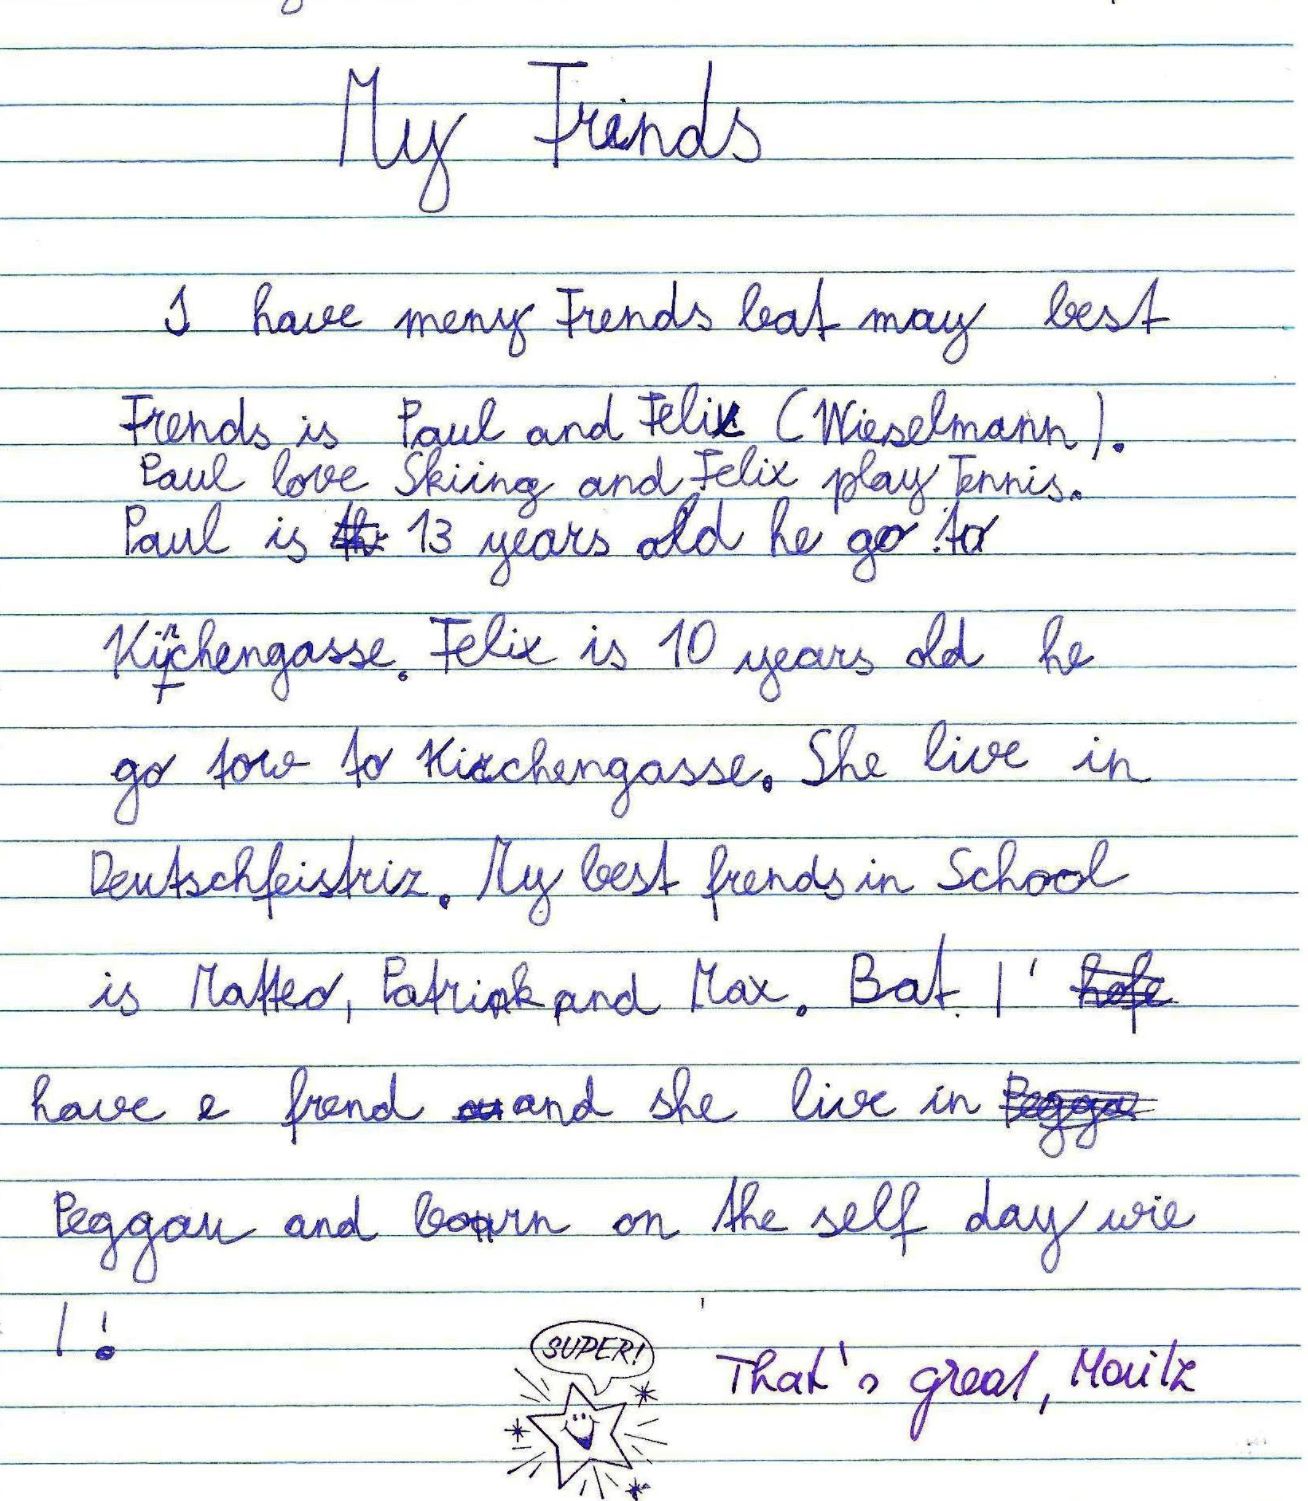 My Frinds
I have meny Frends bat may best
Frends is Paul and Felix (Wieselmann).
Paul love Skiing and Felix play Tennis.
Paul is 13 years old he go to
Kirchengasse. Felix is 10 years old he
go tow to Kirchengasse. She live in
Deutschfeistriz. My best frends in School
is Matteo, Patrick and Max. Bat I
have e frend and she live in
Peggau and boarn on the self day wie
I!
SUPER!
That's great, Moritz